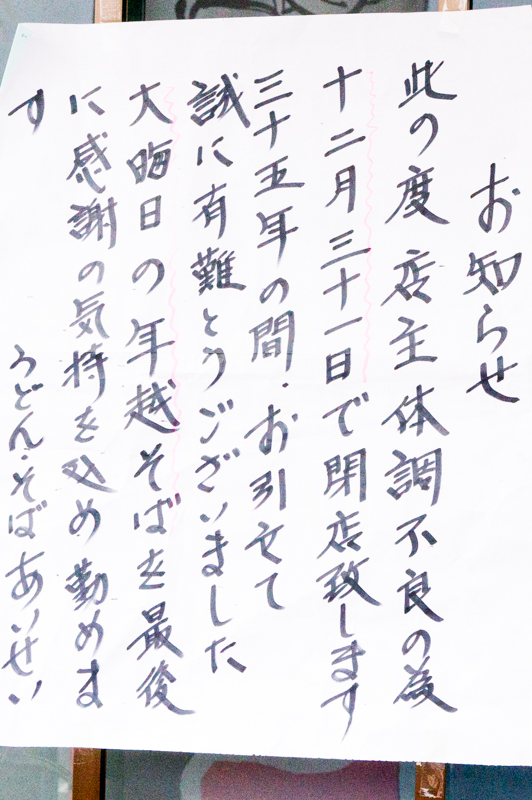 お知らせ
此の度店主体調不良の為
十二月三十一日で閉店致します
三十五年の間、お引立て
誠に有難とうございました
大晦日の年越そばを最後
に感謝の気持を込め勤めま
す
うどん・そばあいせい